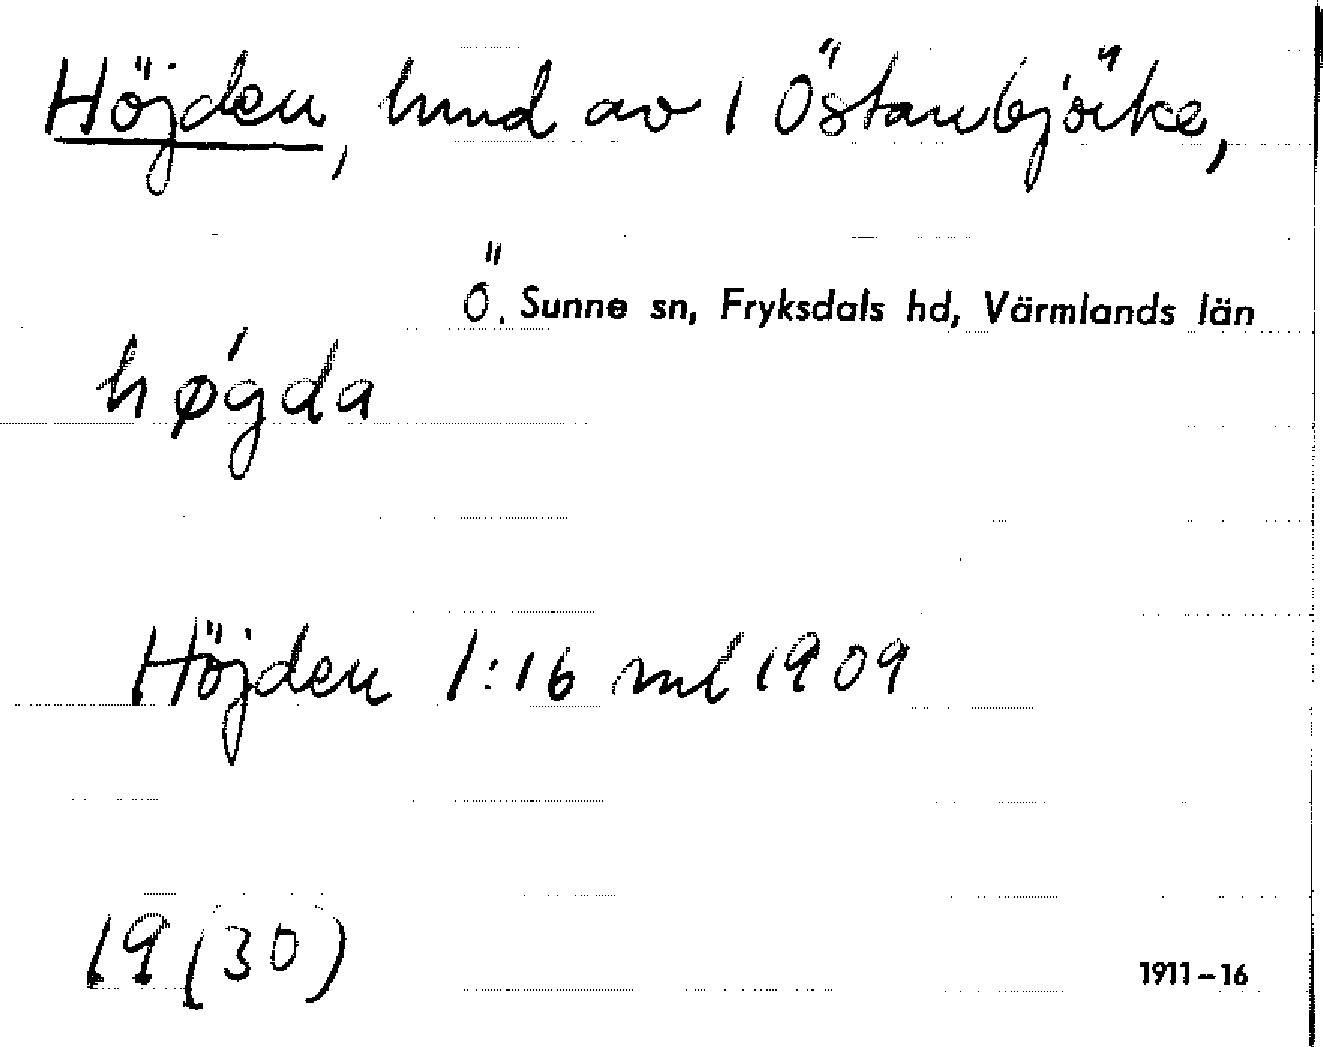 Höjden, hmd av 1 Östanbjörke,
Ö. Sunne sn, Fryksdals hd, Värmlands län
hǿgda
Höjden 1:16 ml 1909
19 (30)
1911–16